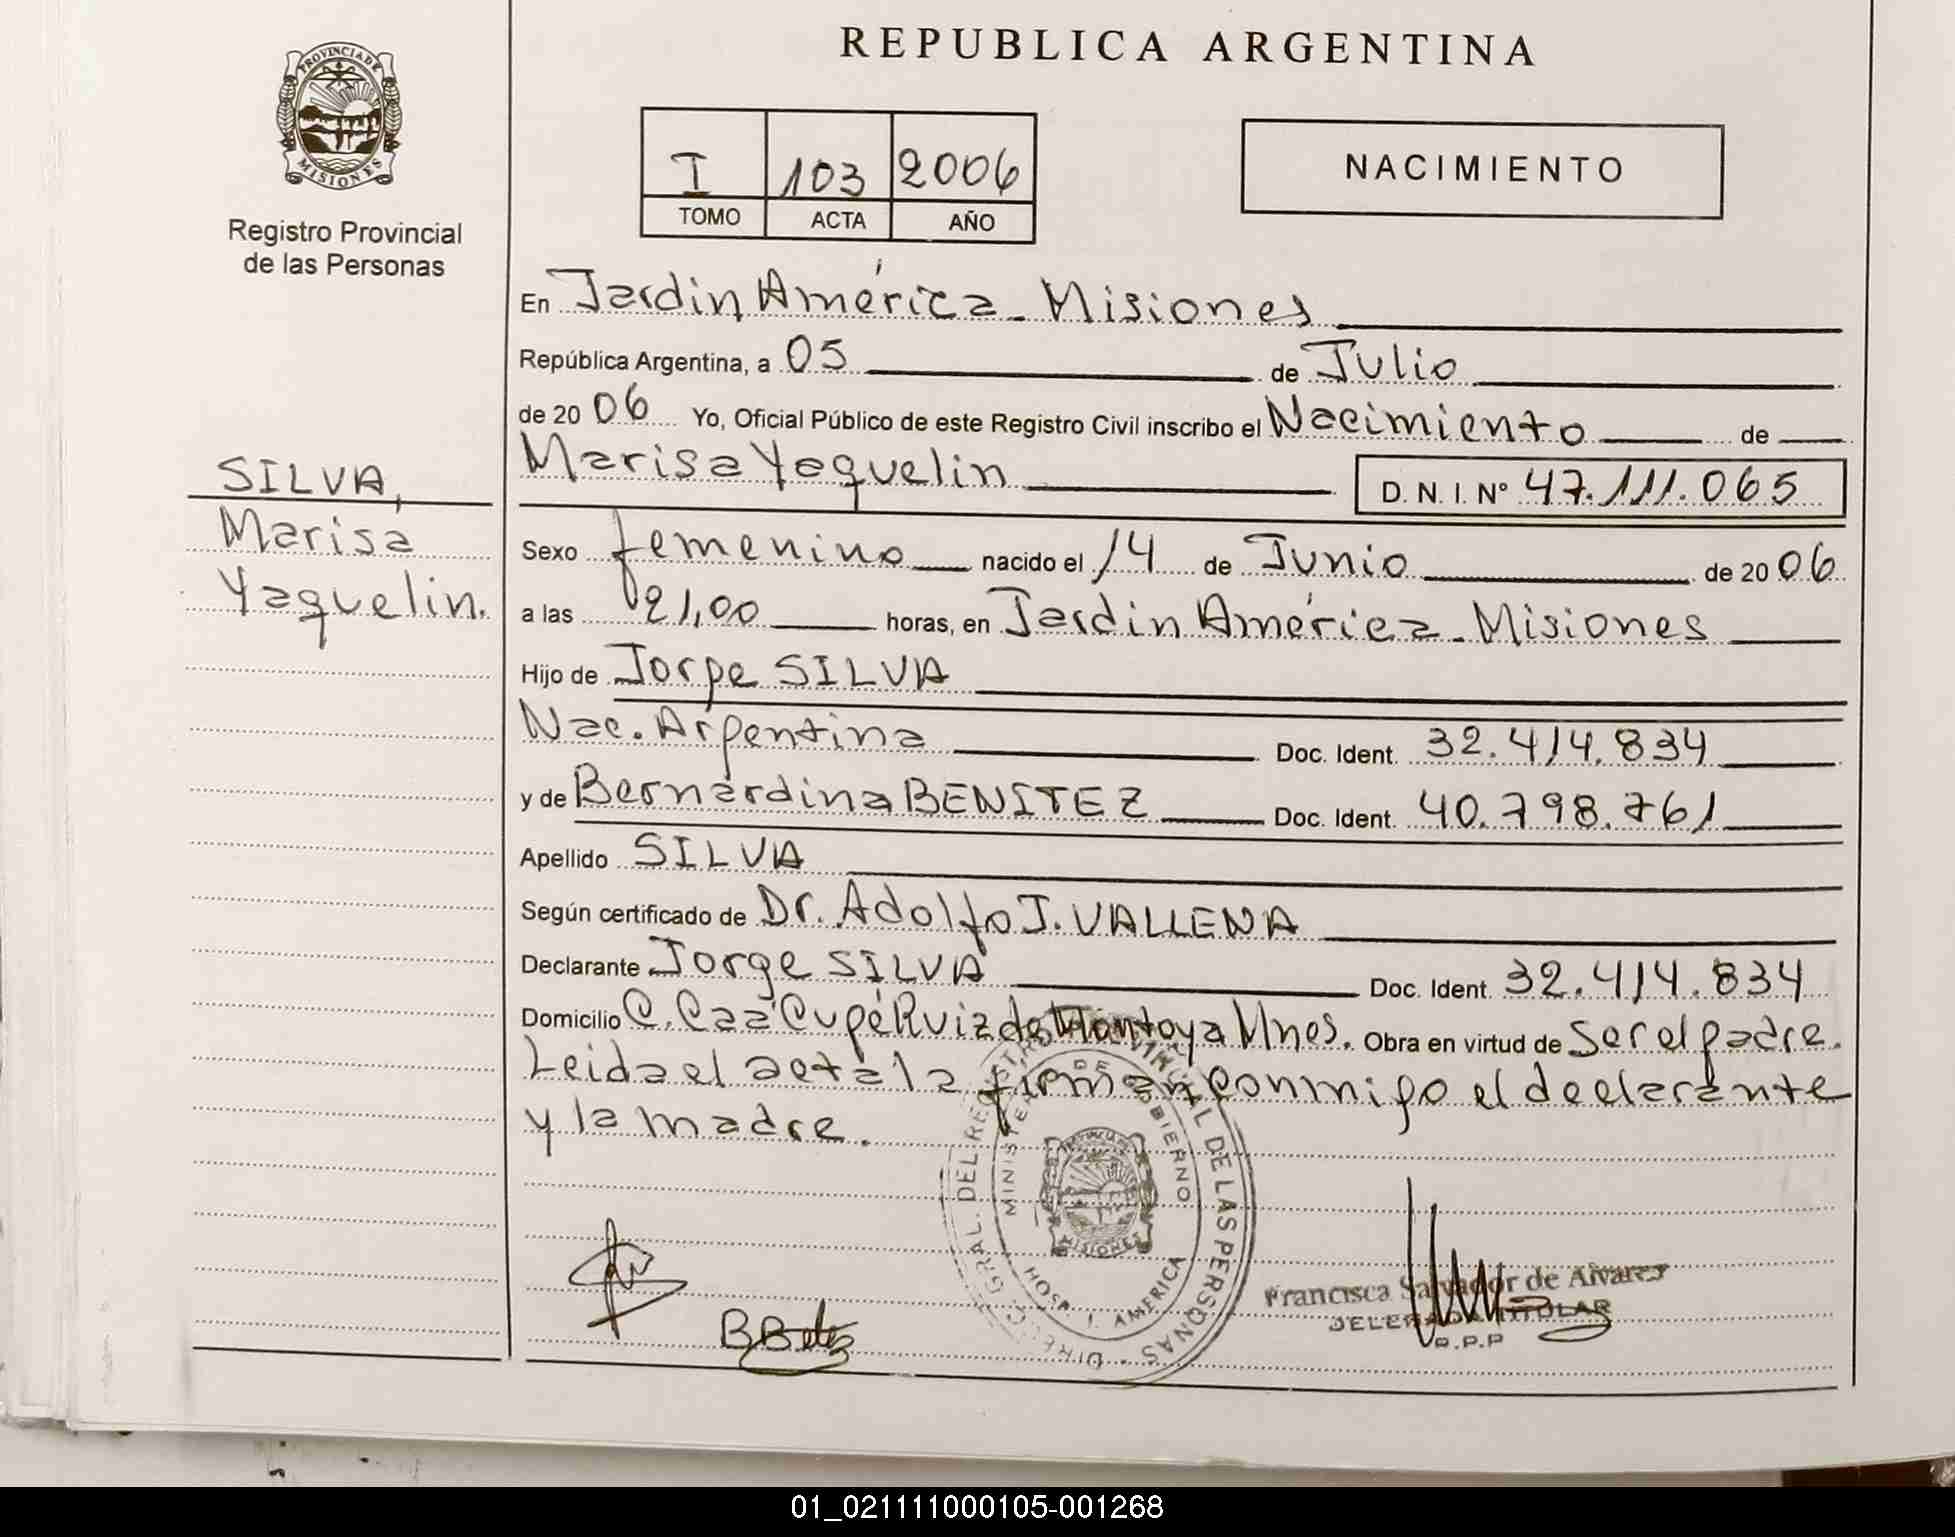 REPUBLICA ARGENTINA
PROVINCIA DE
MISIONES
Registro Provincial
de las Personas
I 103 2006
TOMO ACTA AÑO
NACIMIENTO
En Jardin América - Misiones
República Argentina, a 05 de Julio
de 20 06 Yo, Oficial Público de este Registro Civil inscribo el Nacimiento de
Marisa Yaquelin D. N. I. Nº 47.111.065
SILVA,
Marisa
Yaquelin.
Sexo femenino nacido el 14 de Junio de 20 06
a las 21,00 horas, en Jardin América - Misiones
Hijo de Jorge SILVA
Nac. Argentina Doc. Ident. 32.414.834
y de Bernardina BENITEZ Doc. Ident. 40.798.761
Apellido SILVA
Según certificado de Dr. Adolfo J. VALLENA
Declarante Jorge SILVA Doc. Ident. 32.414.834
Domicilio C. Caa Cupé Ruiz de Montoya Mnes. Obra en virtud de Ser el padre.
Leida el acta la firman conmigo el declarante
y la madre.
DIREC. GRAL. DEL REGISTRO PROVINCIAL DE LAS PERSONAS
MINISTERIO DE GOBIERNO
MISIONES
HOSP. J. AMERICA
Francisca Salvador de Alvarez
DELEGADA TITULAR
R.P.P
01_021111000105-001268